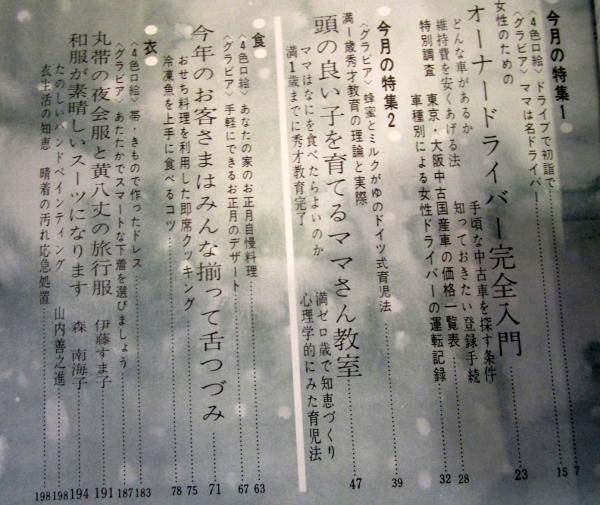 今月の特集1
〈4色口絵〉ドライブで初詣で 7
〈グラビア〉ママは名ドライバー 15
女性のための
オーナードライバー完全入門 23
どんな車があるか 手頃な中古車を探す条件
維持費を安くあげる法 知っておきたい登録手続 28
特別調査 東京・大阪中古国産車の価格一覧表 32
車種別による女性ドライバーの運転記録
今月の特集2
〈グラビア〉蜂蜜とミルクがゆのドイツ式育児法 39
満1歳秀才教育の理論と実際
頭の良い子を育てるママさん教室 47
ママはなにを食べたらよいのか 満ゼロ歳で知恵づくり
満1歳までに秀才教育完了 心理学的にみた育児法
食
〈4色口絵〉あなたの家のお正月自慢料理 63
〈グラビア〉手軽にできるお正月のデザート 67
今年のお客さまはみんな揃って舌つづみ 71
おせち料理を利用した即席クッキング 75
冷凍魚を上手に食べるコツ 78
衣
〈4色口絵〉帯・きもので作ったドレス 183
〈グラビア〉あたたかでスマートな下着を選びましょう 187
丸帯の夜会服と黄八丈の旅行服 伊藤すま子 191
和服が素晴しいスーツになります 森 南海子 194
たのしいハンドペインティング 山内善之進 198
衣生活の知恵 晴着の汚れ応急処置 198